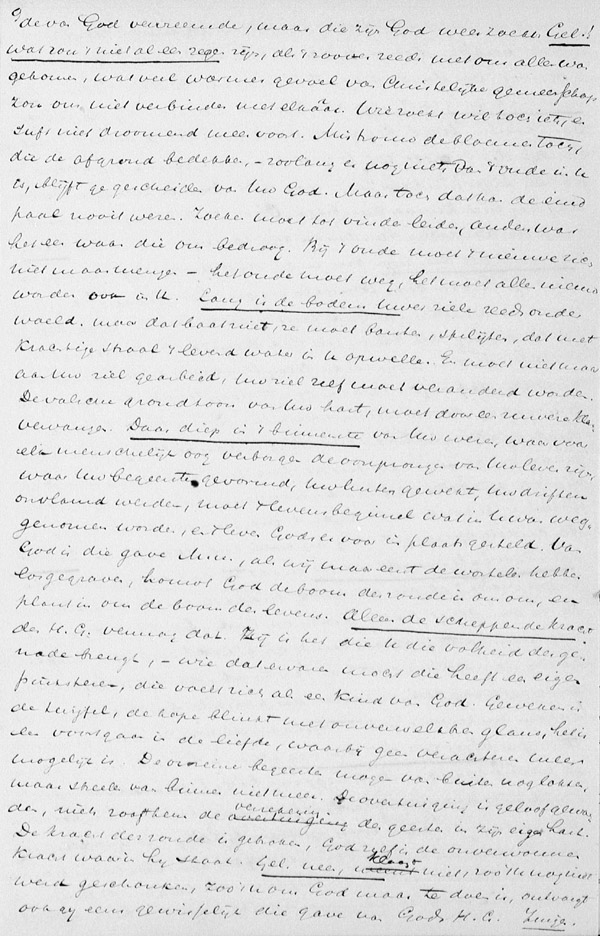 de van God vervreemde, maar die zijn God weer zoeken Gel.!
wat zou 't niet al een zegen zijn, als 't zoover reeds met ons allen was
gekomen, wat veel warmer gevoel van Christelijke gemeenschap
zou ons niet verbinden met elkaar. Wie zoekt wil toch iets, en
suft niet droomend meer voort. Mis komen de bloemen toch,
die de afgrond bedekken, – zoolang er nog iets van 't oude in U
is, blijft ge gescheiden van Uw God. Maar toch dat kan de eind
paal nooit wezen. Zoeken moet tot vinden leiden, anders was
het een waan die ons bedroog. Bij 't oude moet 't nieuwe zich
niet maar mengen – het oude moet weg, het moet alles nieuw
worden ook in U. Lang is de bodem Uwer ziele reeds onder
woeld. maar dat baat niet, ze moet barsten, splijten, dat met
krachtige straal 't levend water in U opwelle. Er moet niet maar
aan Uw ziel gearbeid, Uw ziel zelf moet veranderd worden.
De valsche grondtoon van Uw hart, moet door een zuivere
vervangen. Daar diep in 't binnenste van Uw wezen, waar voor
elk menschelijk oog verborgen de oorsprongen van Uw leven zijn,
waar Uw begeerten gevormd, Uw lusten gewekt, Uw driften
ontvlamd werden, moet 't levensbeginsel wat in U was weg-
genomen worden, en 't leven Gods er voor in plaats gesteld. Van
God is die gave M.n., als wij maar eerst de wortels hebben
losgegraven, komt God de boom der zonde in ons om, en
plant in ons de boom des levens. Alleen de scheppende kracht
des H. G. vermag dat. Hij is het die U die volheid der ge-
nade brengt, – wie dat ervaren mocht die heeft een eigen
pinksteren, die voelt zich als een kind van God. Geweken is
de twijfel, de hope blinkt met onverwelkbre glans, het is
een voortgaan in de liefde, waarbij geen verachteren meer
mogelijk is. De onreine begeerten mogen van buiten nog lokken,
maar streelen van binnen niet meer. De overtuiging is geloof gewor
den, niets rooft hem de verzekering overtuiging des geestes in zijn eigen hart.
De kracht der zonde is gebroken, God zelf is de onverwonnen
kracht waarin hij staat. Gel. neen, klaagt niet, zoo 't U nog niet
werd geschonken, zoo 't U om God maar te doen is, ontvangt
ook gij eens gewisselijk die gave van Gods H. G. Zingen.